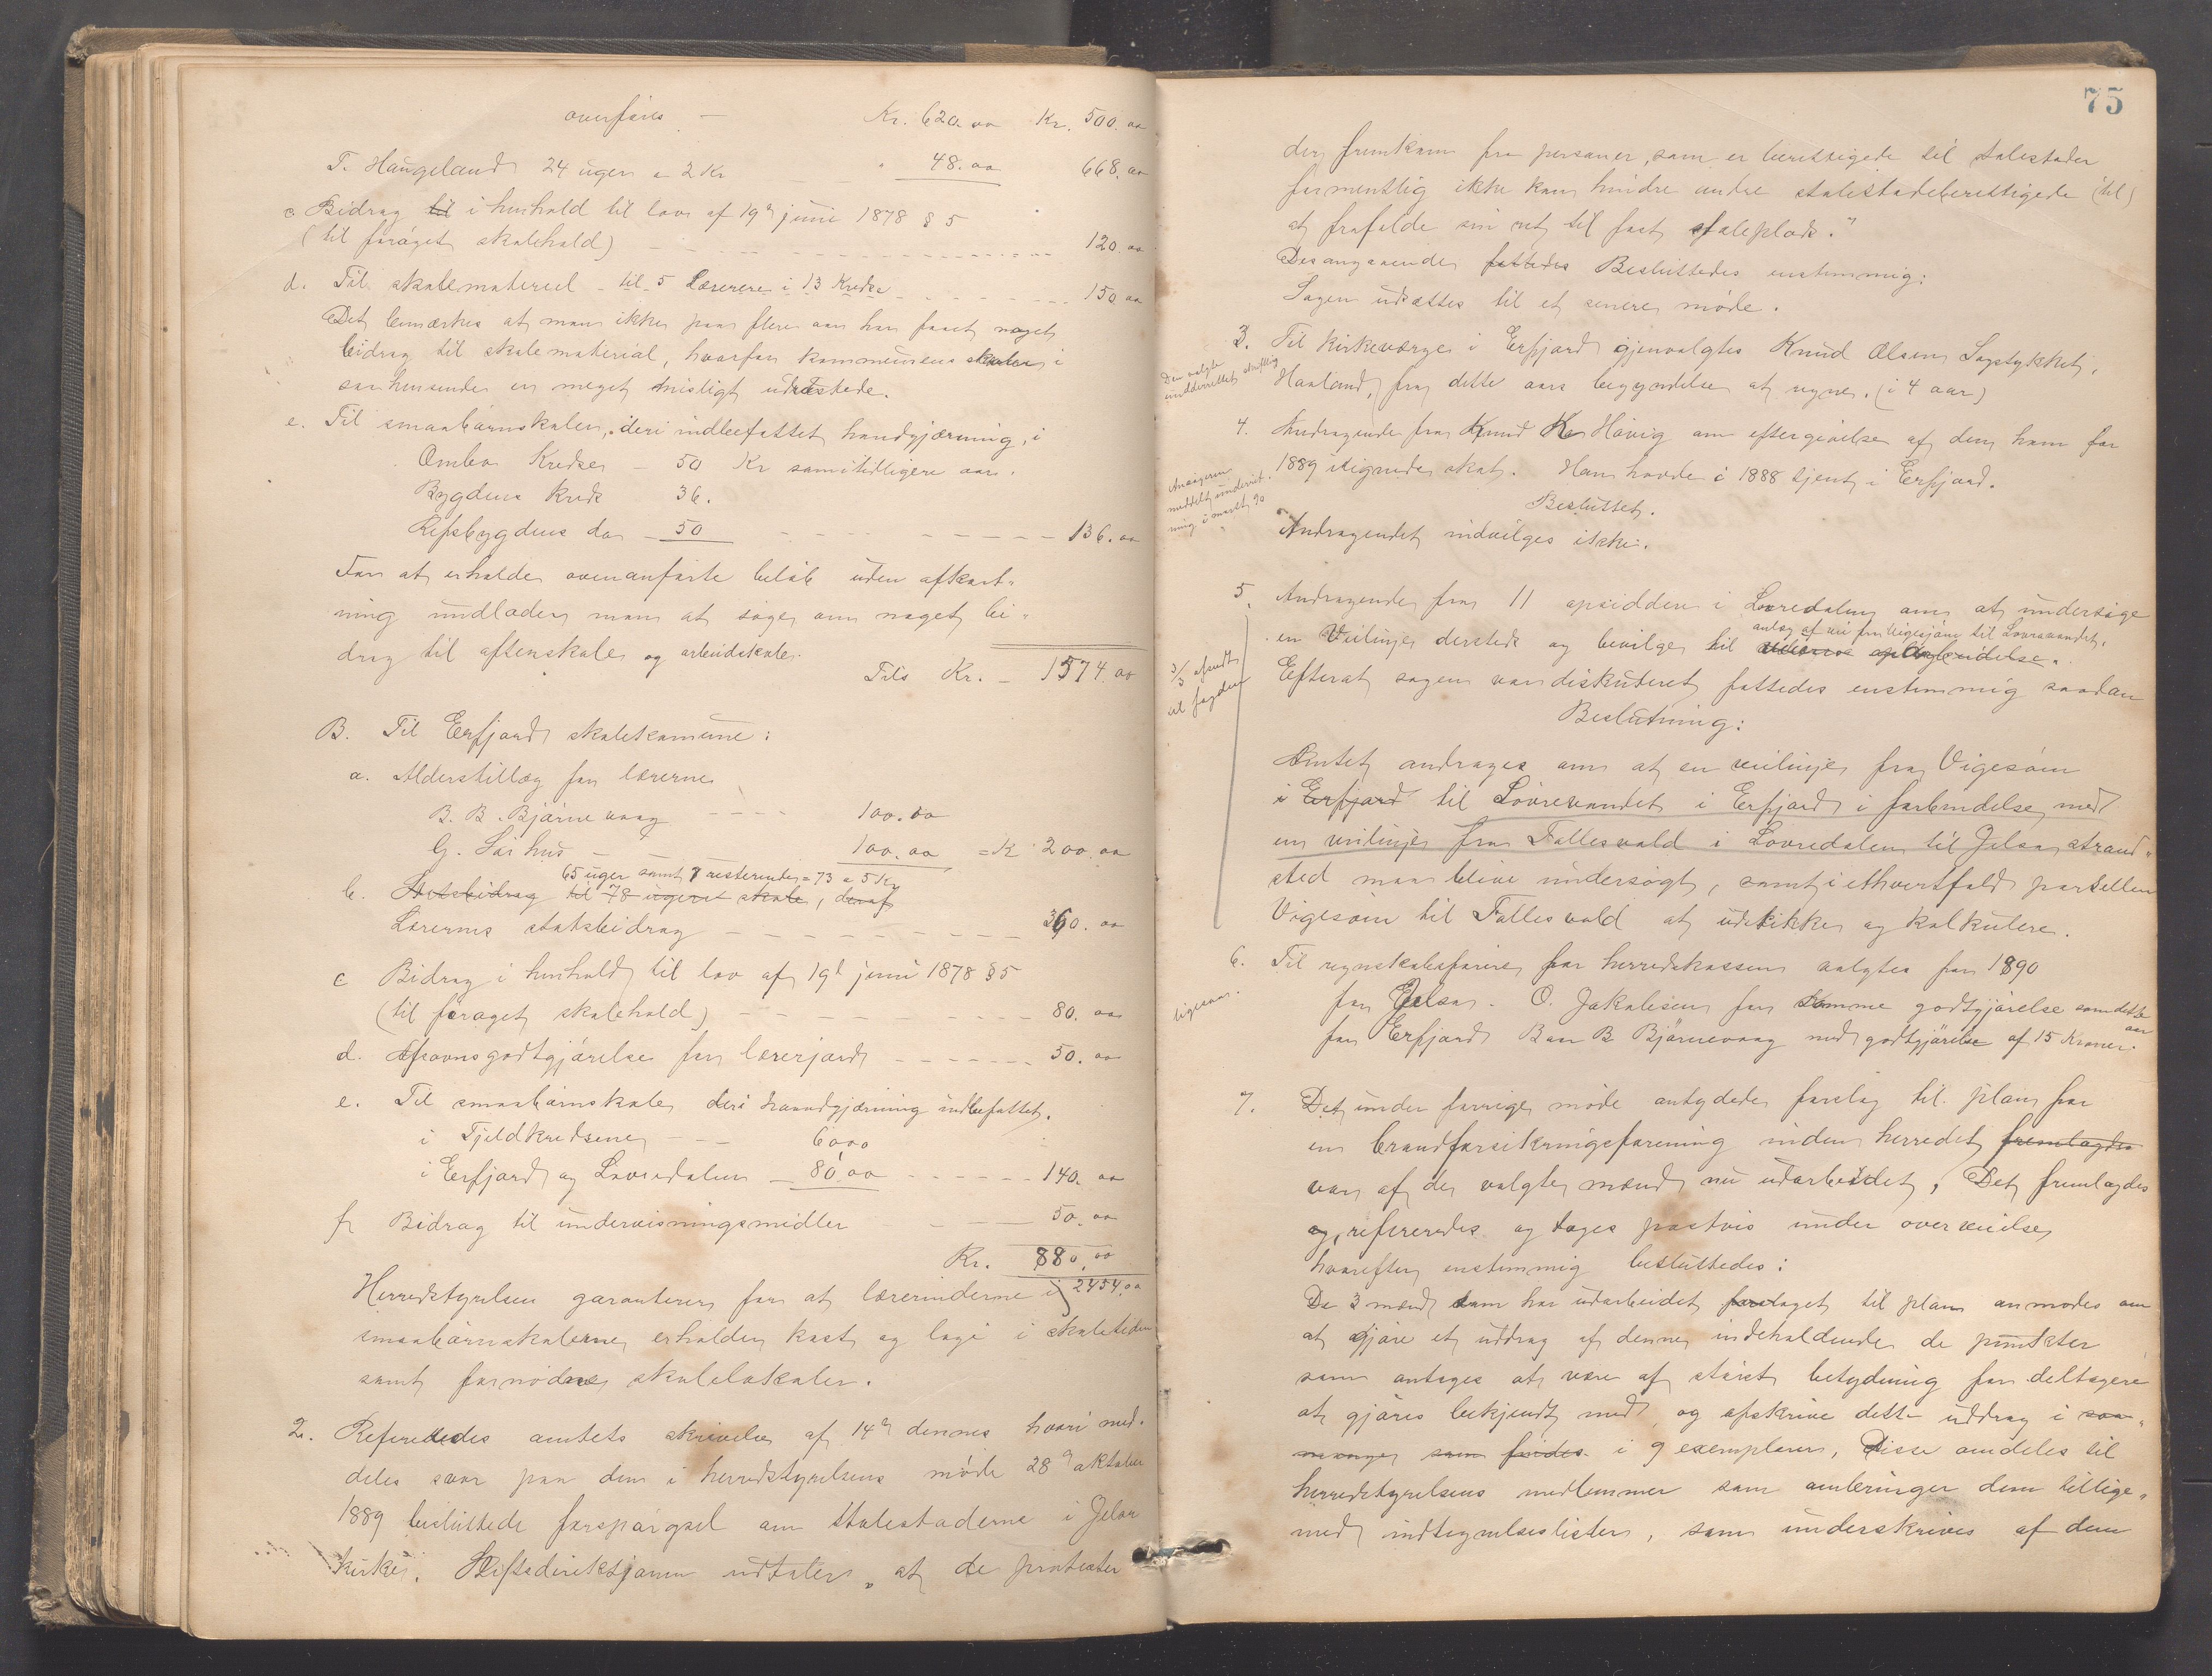 overføres — Kr. 620.00 Kr. 500.00
T. Haugeland 24 uger a 2 Kr " 48.00 668.00
c Bidrag til i henhold til lov af 19de juni 1878 § 5
(til forøget skolehold) 120.00
d. Til skolemateriel - til 5 Lærere i 13 Kredse 150.00
Det bemærkes at man ikke paa flere aar har faaet noget
bidrag til skolemateriel, hvorfor kommunens skoler i
saa henseende er meget misligt udrustede.
e. Til smaabarnskolen, deri indbefattet haandgjærning, i
Ombo Kredse — 50 Kr som tidligere aar.
Bygdens Kreds 36.
Refsbygdens do — 50 — 136.00
For at erholde ovenanførte beløb uden afkort-
ning undlader man at søge om noget bi-
drag til aftenskole og arbeidskole.
Tils Kr. — 1574.00
B. Til Erfjord skolekomune:
a. Alderstillæg for lærerne
B. B. Bjørnevaag 100.00
G. Sørhus — 100.00 = Kr 200.00
65 uger samt 8 resterende = 73 a 5 Kr
b. Statsbidrag til 78 ugers skole, deraf
Lærernes statsbidrag 360.00
c Bidrag i henhold til lov af 19de juni 1878 § 5
(til forøget skolehold) 80.00
d. Afsavnsgodtgjørelse for lærerjord 50.00
e. Til smaabarnskole deri haandgjærning indbefattet.
i Fjeldkredsene — 60.00
i Erfjord og Lovredalen — 80.00 140.00
f Bidrag til undervisningsmidler 50.00
Kr. 880.00
Herredstyrelsen garanterer for at lærerinderne i 2454.00
smaabarnskolerne erholder kost og logi i skoletiden
samt fornødne skolelokaler.
2. Refereredes amtets skrivelse af 14de dennes hvori med-
deles svar paa den i herredstyrelsens møde 28de oktober
1889 besluttede forspørgsel om Stolestaderne i Jelsa
kirke. Stiftsdireksjonen udtaler "at de protester
75
der fremkom fra personer, som er berettigede til stolestader
formentlig ikke kan hindre andre stolestadeberettigede (til)
at frafalde sin ret til fast stoleplads."
Desangaaende fattedes Besluttedes enstemmig:
Sagen udsættes til et senere møde.
3. Til kirkeværge i Erfjord gjenvalgtes Knud Olsen Sagstykket,
Haaland, fra dette aars begyndelse at regne. (i 4 aar)
Den valgte
underrettet skriftlig
4. Andragende fra Knud K. Høvig om eftergivelse af den ham for
1889 ilignede skat. Han havde i 1888 tjent i Erfjord.
Besluttet.
Andragendet indvilges ikke.
Ansøgeren
meddelt underret-
ning i marts 90
5. Andragende fra 11 opsiddere i Lovredalen om at undersøge
anlæg af vei fra Vigesjøen til Lovravandet.
en Veilinje dersteds og bevilge til
Efterat sagen var diskuteret fattedes enstemmig saadan
Beslutning:
3/3 afsendt
til fogden
Amtet andrages om at en veilinje fra Vigesøen
i Erfjord til Lovrevandet i Erfjord i forbindelse med
en veilinje fra Fallesvold i Lovredalen til Jelsa strand-
sted maa blive undersøgt, samt i ethvertfald parsellen
Vigesøen til Fallesvold at udstikke og kalkulere.
6. Til regnskabsførere for herredskassen valgtes for 1890
for Jelsa. O. Jakobsen for samme godtgjørelse som dette aar
for Erfjord B B Bjørnevaag med godtgjørelse af 15 Kroner.
ligesaa.
7. Det under forrige møde antydede forslag til plan for
en brandforsikringsforening inden herredet fremlagdes
var af de valgte mænd nu udarbeidet, Det fremlagdes
og, refereredes og toges postvis under overveielse
hvorefter enstemmig besluttedes:
De 3 mænd som har udarbeidet forslaget til plan anmodes om
at gjøre et uddrag af denne indeholdende de punkter
som antages at være af størst betydning for deltagere
at gjøres bekjendt med, og afskrive dette uddrag i saa-
mange som findes i 9 exemplarer, Disse omdeles til
herredstyrelsens medlemmer som ombringer dem tillige-
med indtegnelseslister, som underskrives af dem